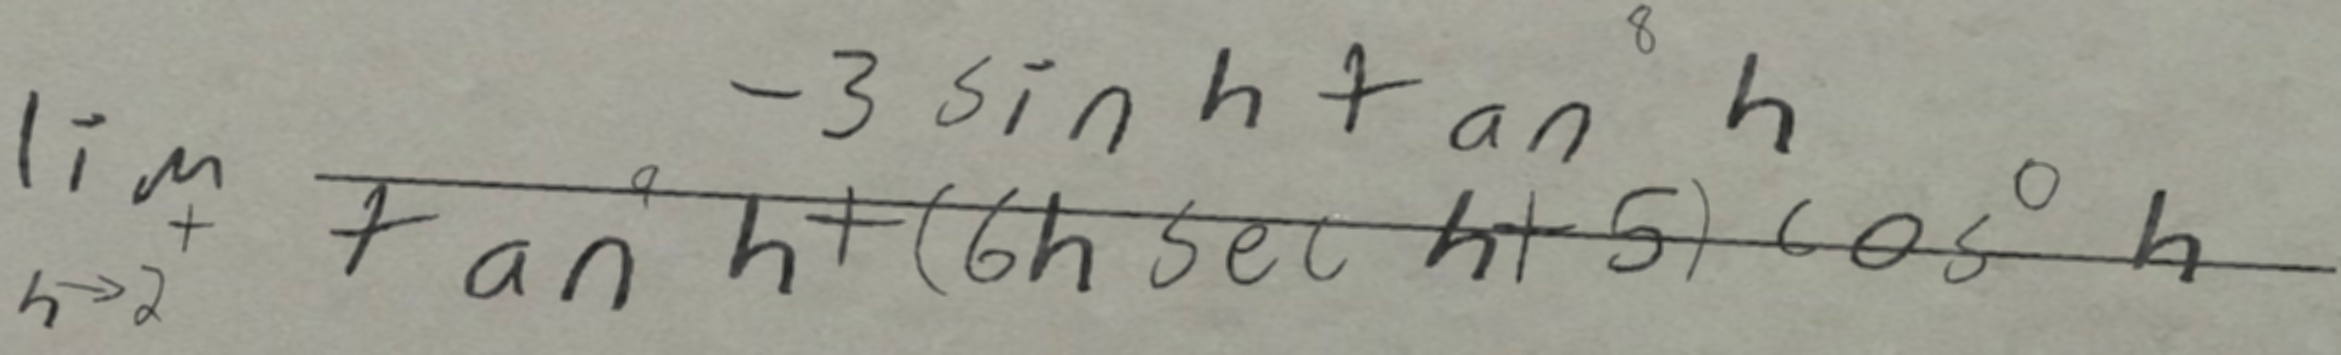 \lim_{h \to 2^+} \frac{-3 \sin h \tan^8 h}{\tan^9 h + (6h \sec h + 5) \cos^0 h}